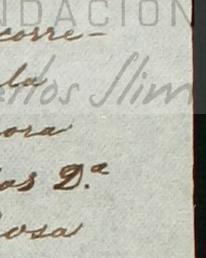 NDACIÓN
corre-
la
ntos Slim
ora
os D.ª
osa